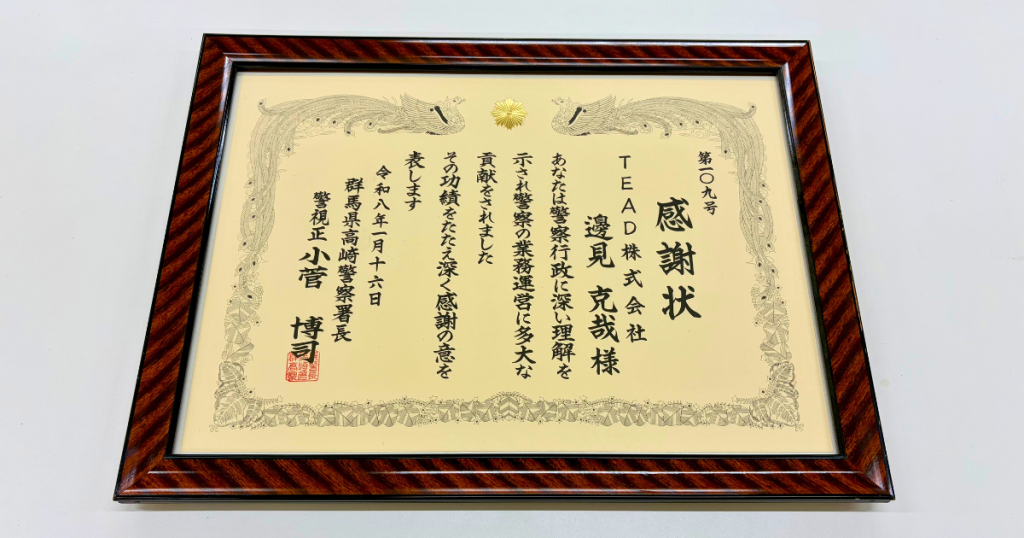 第一〇九号
感謝状
TEAD株式会社
邊見 克哉様
あなたは警察行政に深い理解を
示され警察の業務運営に多大な
貢献をされました
その功績をたたえ深く感謝の意を
表します
令和八年一月十六日
群馬県高崎警察署長
警視正 小菅 博司